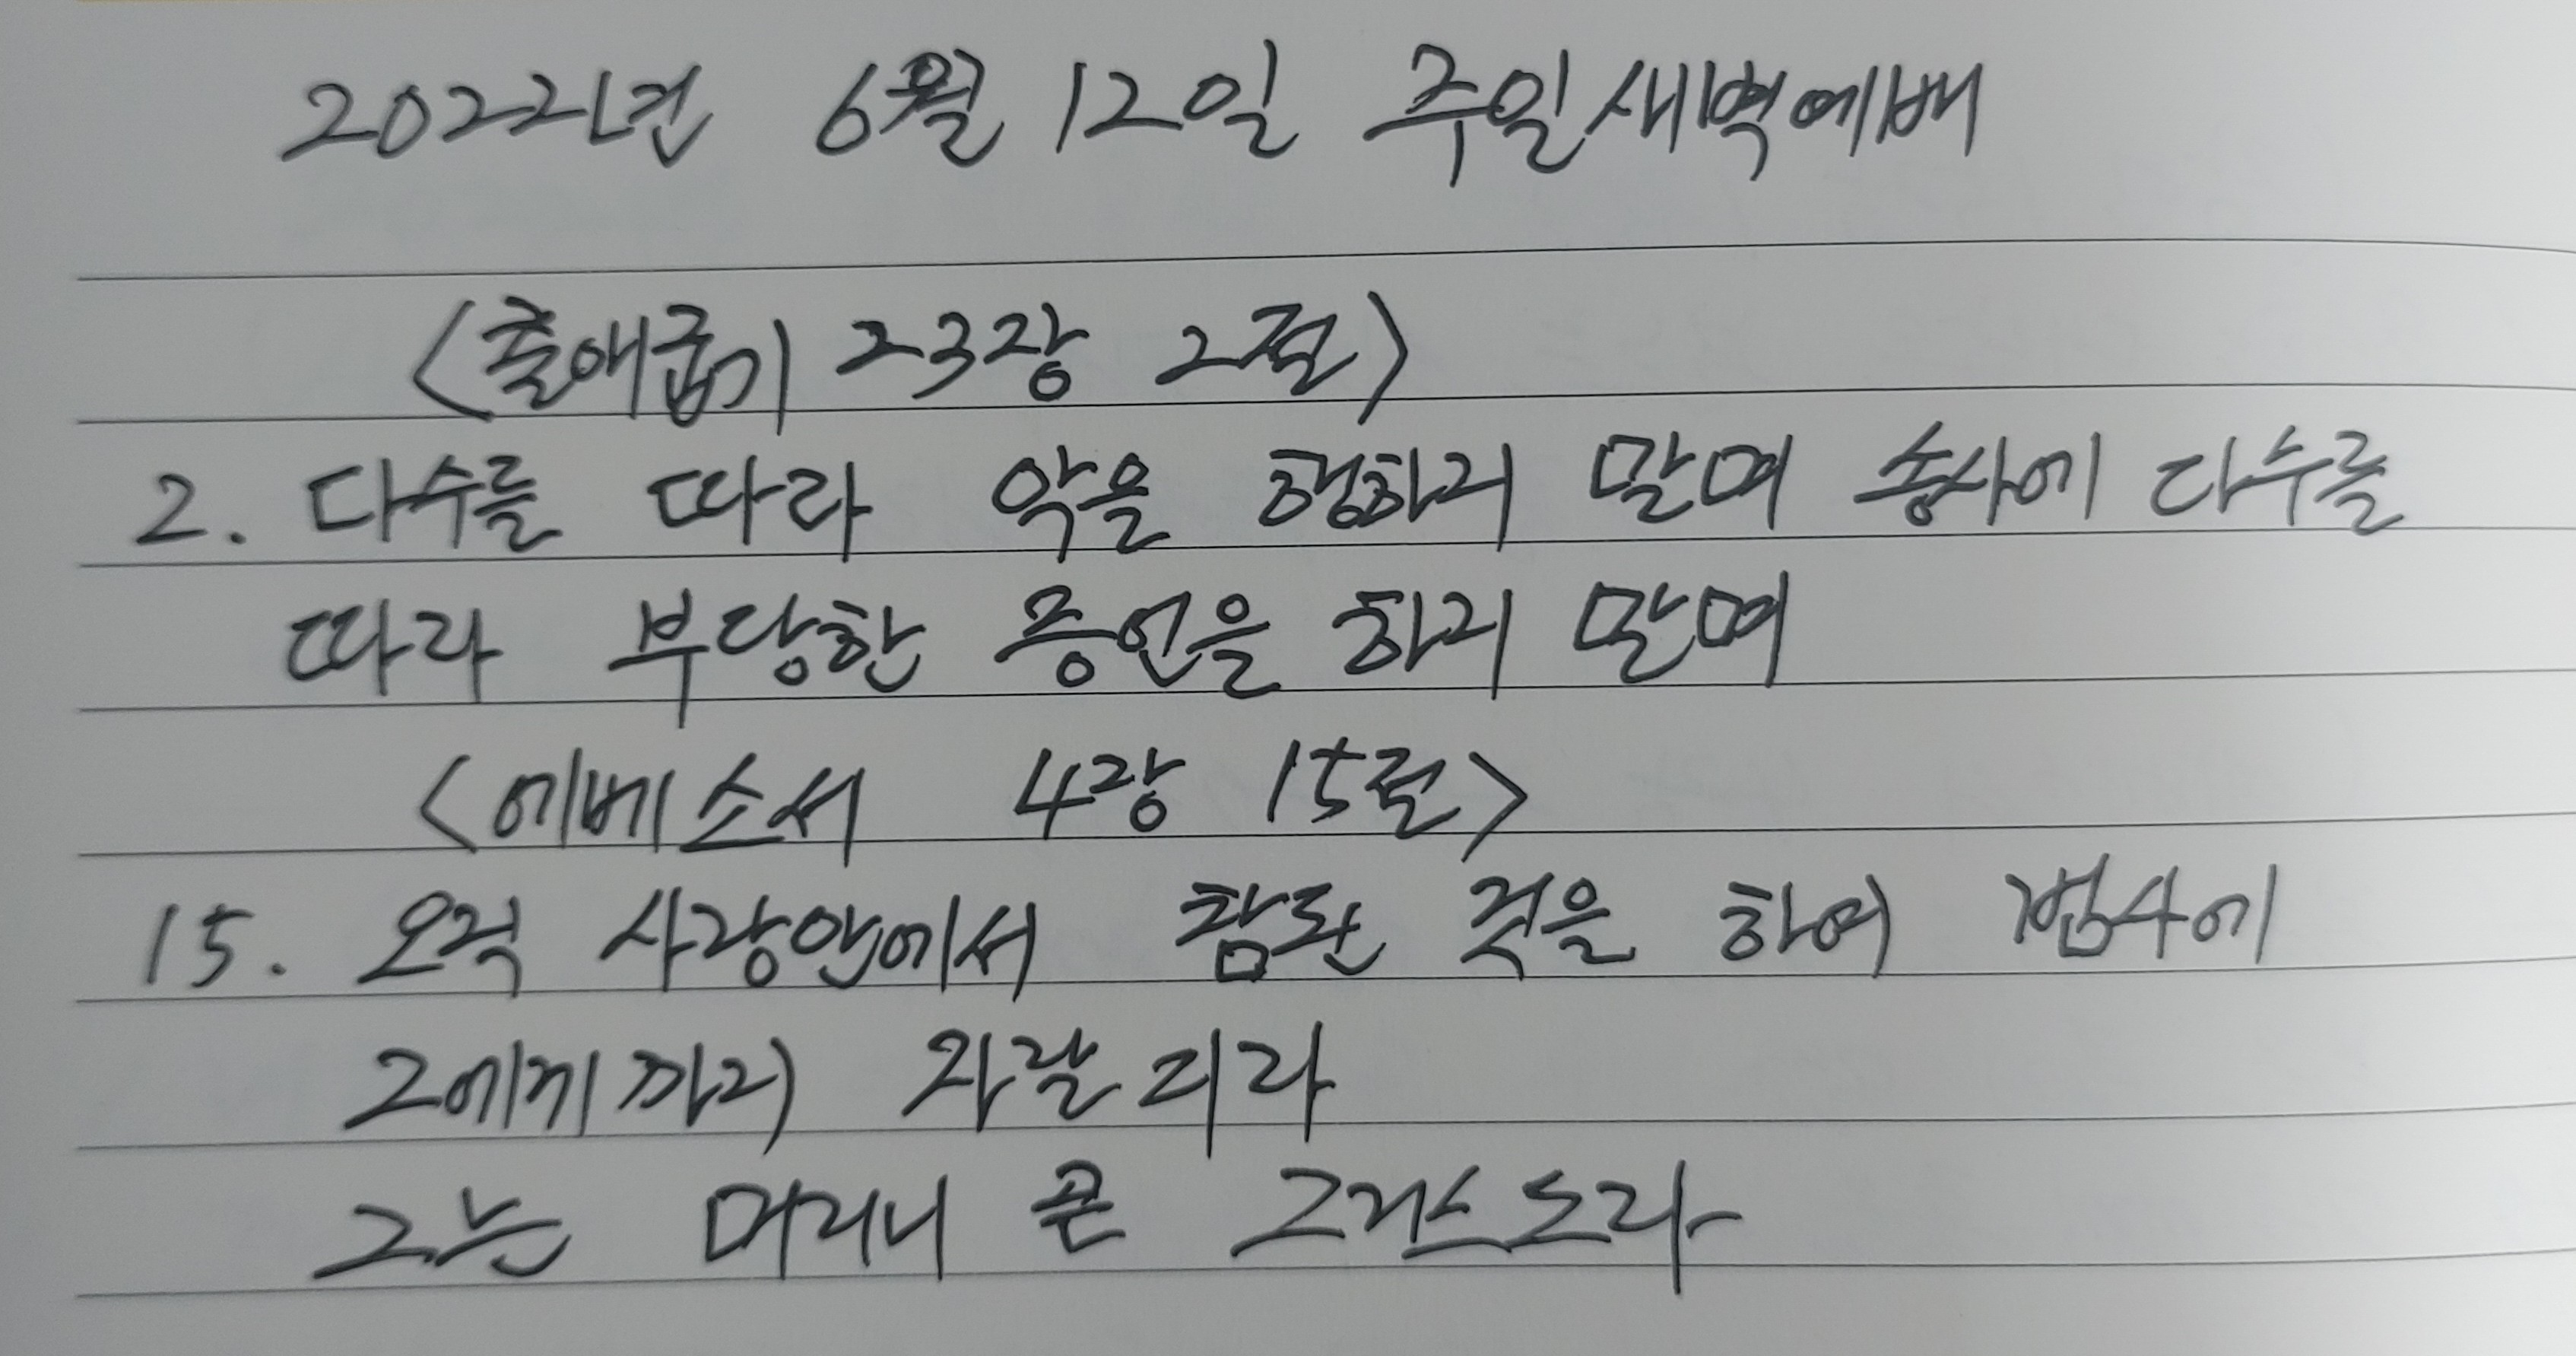 2022년 6월 12일 주일새벽예배
<출애굽기 23장 2절>
2. 다수를 따라 악을 행하지 말며 송사에 다수를
따라 부당한 증언을 하지 말며
<에베소서 4장 15절>
15. 오직 사랑안에서 참된 것을 하여 범사에
그에게까지 자랄지라
그는 머리니 곧 그리스도라